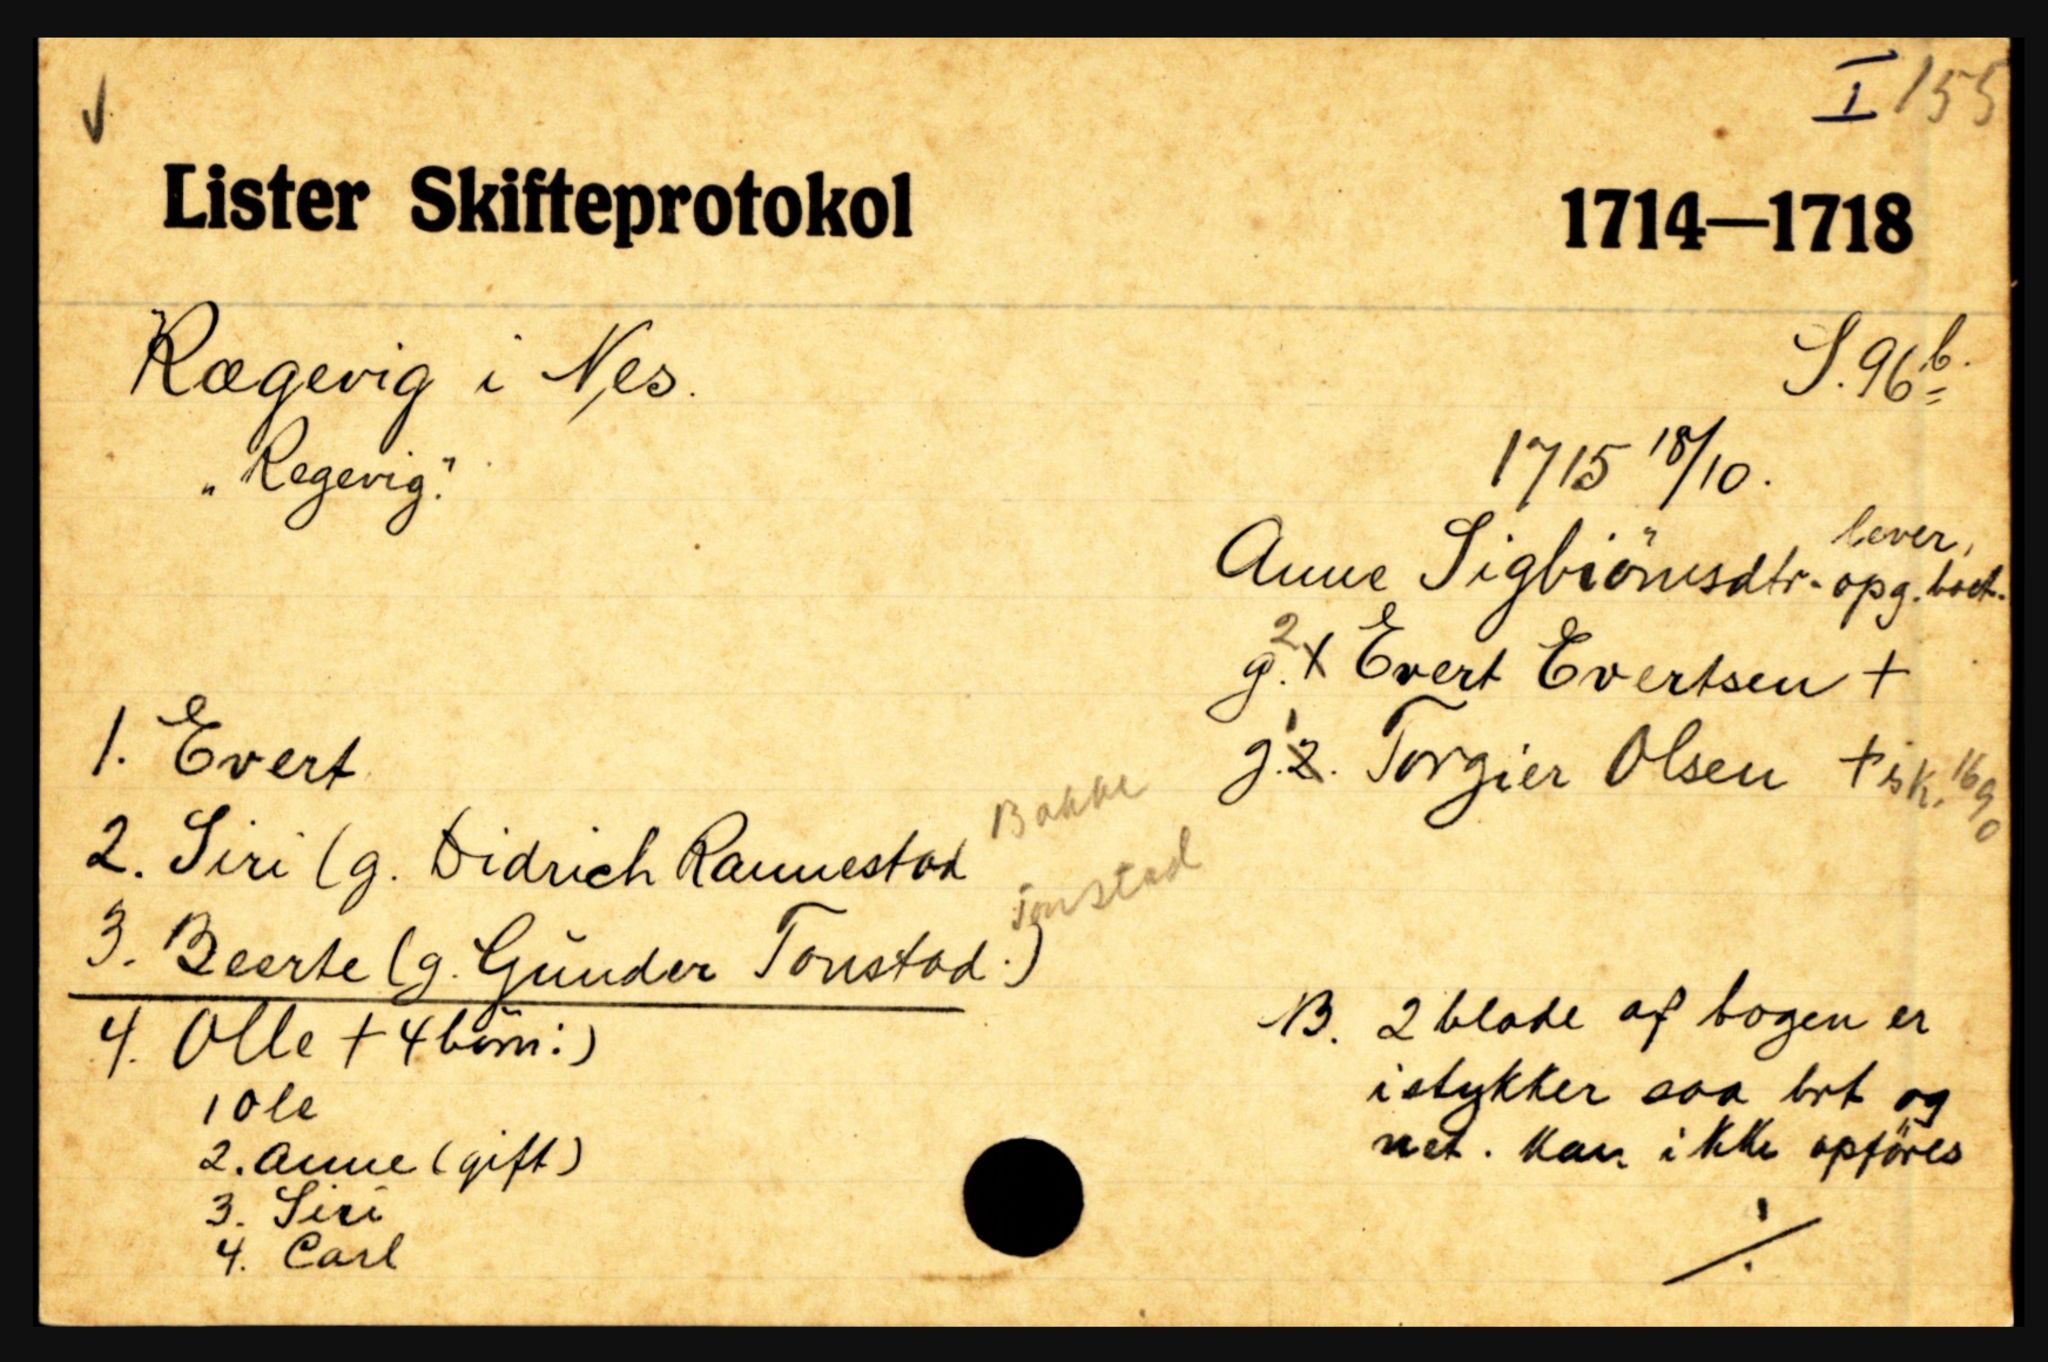 I 155
Lister Skifteprotokol 1714—1718
Rægevig i Nes. S. 96 b.
"Regevig."
1715 18/10.
Anne Sigbiörnsdtr. lever, opg. boet.
g. 2 Evert Evertsen +
g. 1 Torgier Olsen + sk. 1690
1. Evert
2. Siri (g. Didrich Rannestad Bakke
3. Beerte (g. Gŭnder Tonstad.) Tonstad
4. Olle + 4 börn:)
1 Ole
2. Anne (gift)
3. Siri
4. Carl
NB. 2 blade af bogen er
istykker saa brt og
net. kan ikke opföres